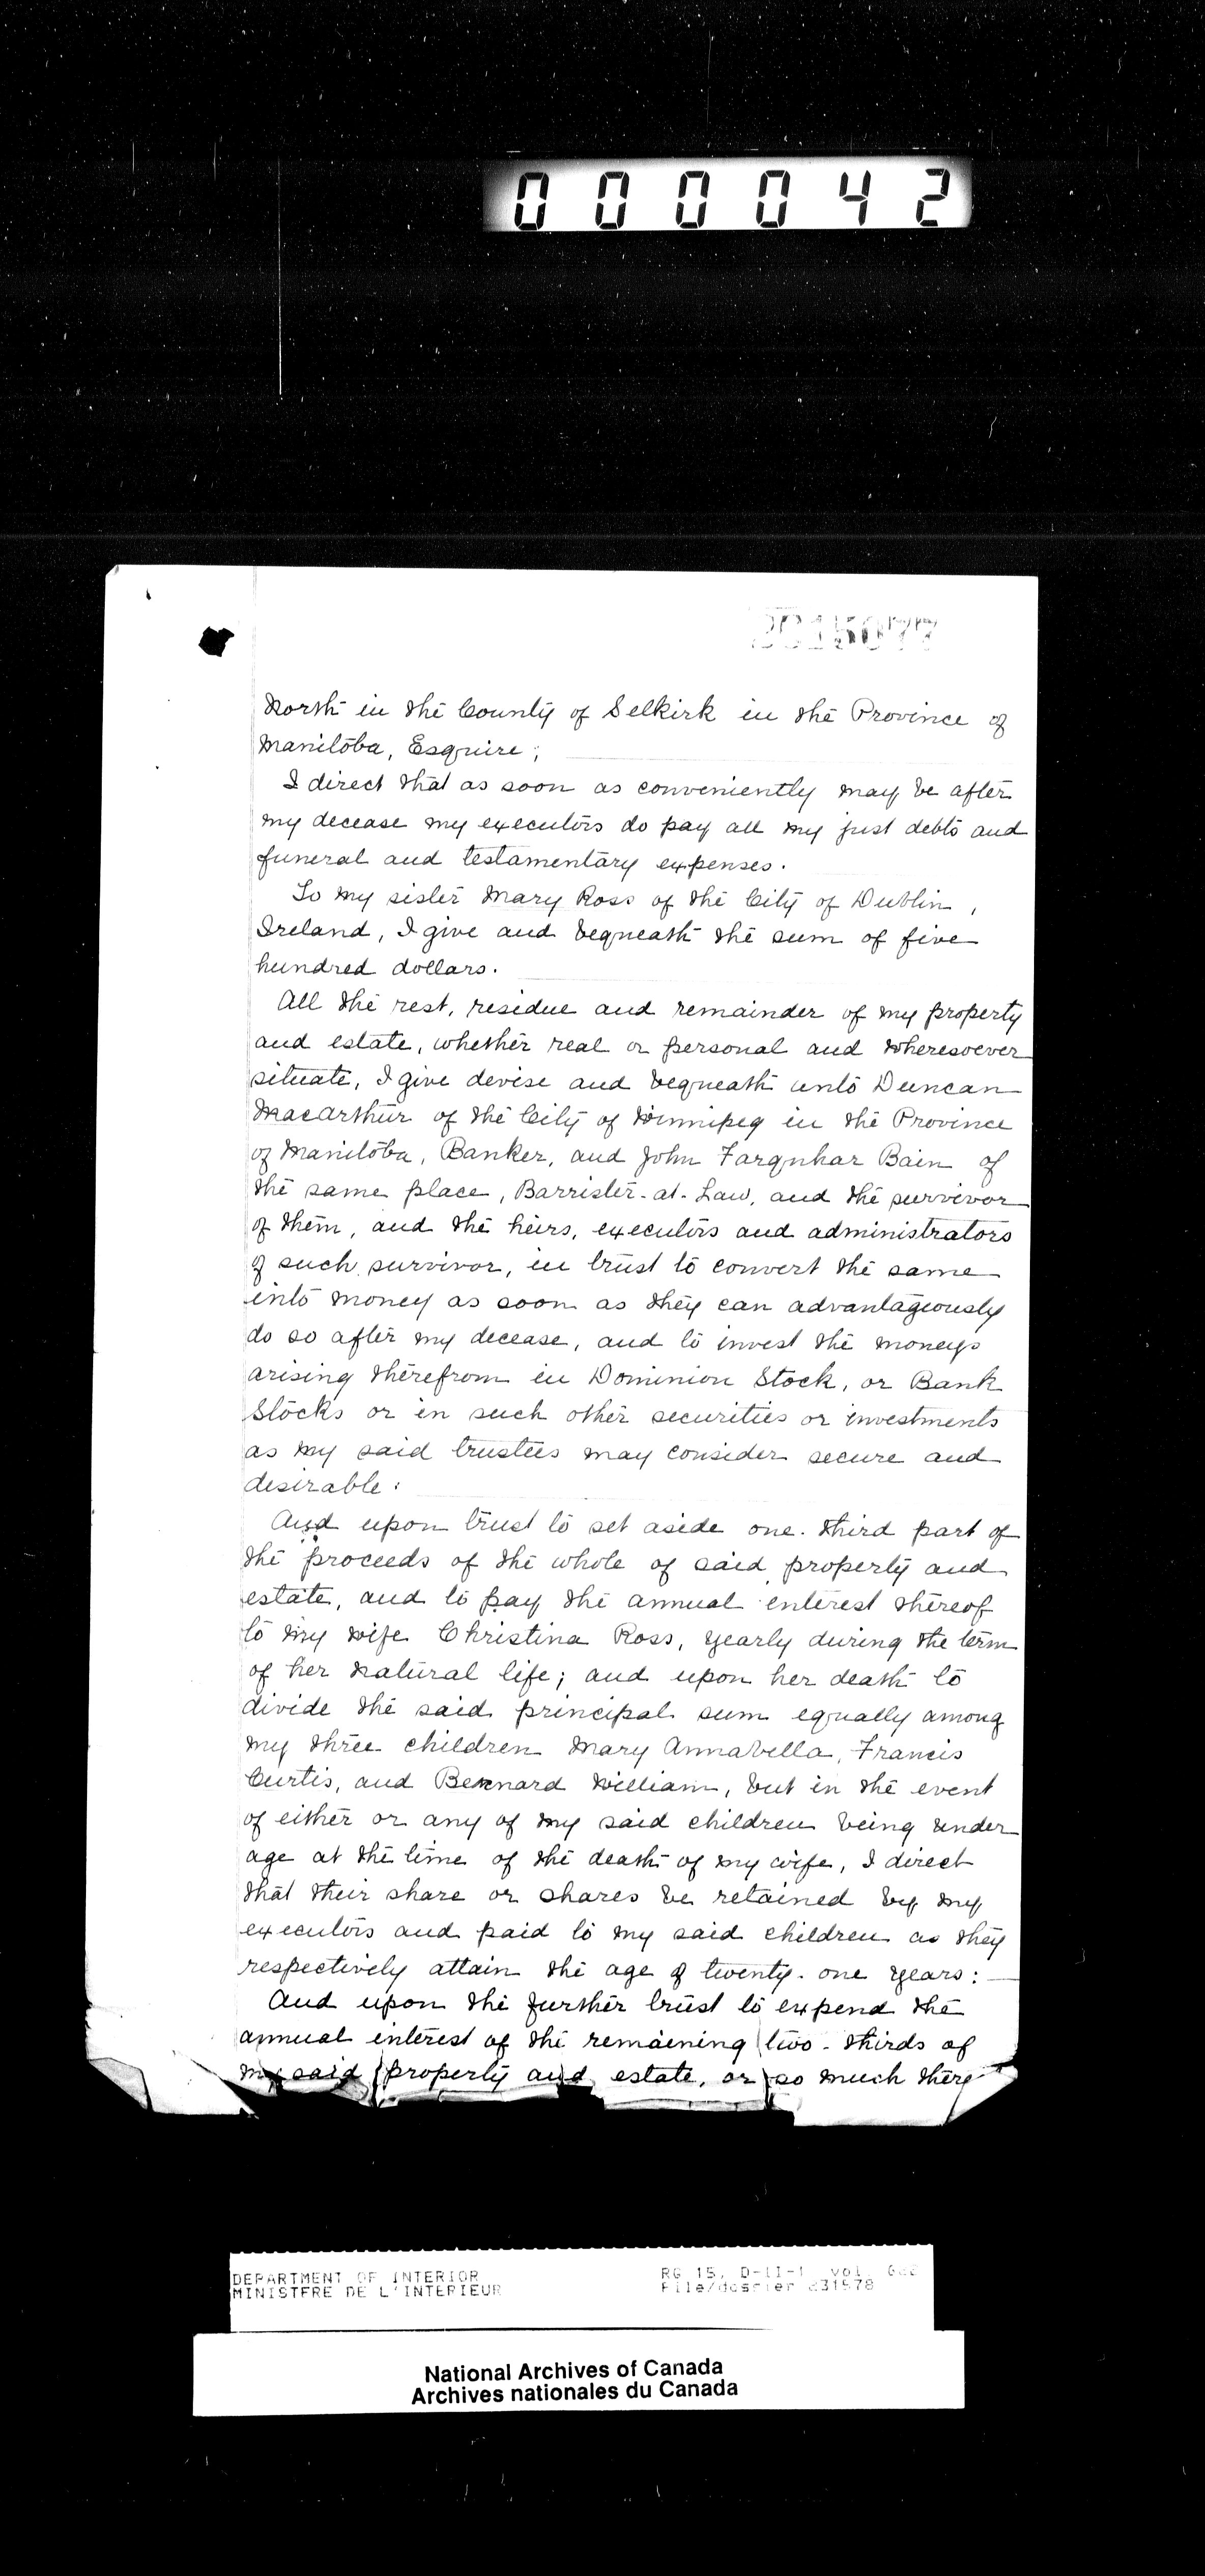 000042
2015077
North in the County of Selkirk in the Province of
Manitoba, Esquire;
I direct that as soon as conveniently may be after
my decease my executors do pay all my just debts and
funeral and testamentary expenses.
To my sister Mary Ross of the City of Dublin,
Ireland, I give and bequeath the sum of five
hundred dollars.
All the rest, residue and remainder of my property
and estate, whether real or personal and wheresoever
situate, I give devise and bequeath unto Duncan
MacArthur of the City of Winnipeg in the Province
of Manitoba, Banker, and John Farquhar Bain of
the same place, Barrister-at-Law, and the survivor
of them, and the heirs, executors and administrators
of such survivor, in trust to convert the same
into money as soon as they can advantageously
do so after my decease, and to invest the moneys
arising therefrom in Dominion Stock, or Bank
Stocks or in such other securities or investments
as my said trustees may consider secure and
desirable:
And upon trust to set aside one-third part of
the proceeds of the whole of said property and
estate, and to pay the annual interest thereof
to my wife Christina Ross, yearly during the term
of her natural life; and upon her death to
divide the said principal sum equally among
my three children Mary Annabella, Francis
Curtis, and Bernard William, but in the event
of either or any of my said children being under
age at the time of the death of my wife, I direct
that their share or shares be retained by my
executors and paid to my said children as they
respectively attain the age of twenty-one years:
And upon the further trust to expend the
annual interest of the remaining two-thirds of
my said property and estate, or so much there
DEPARTMENT OF INTERIOR
MINISTERE DE L'INTERIEUR
RG 15, D-II-1, vol.
File/dossier 231578
National Archives of Canada
Archives nationales du Canada